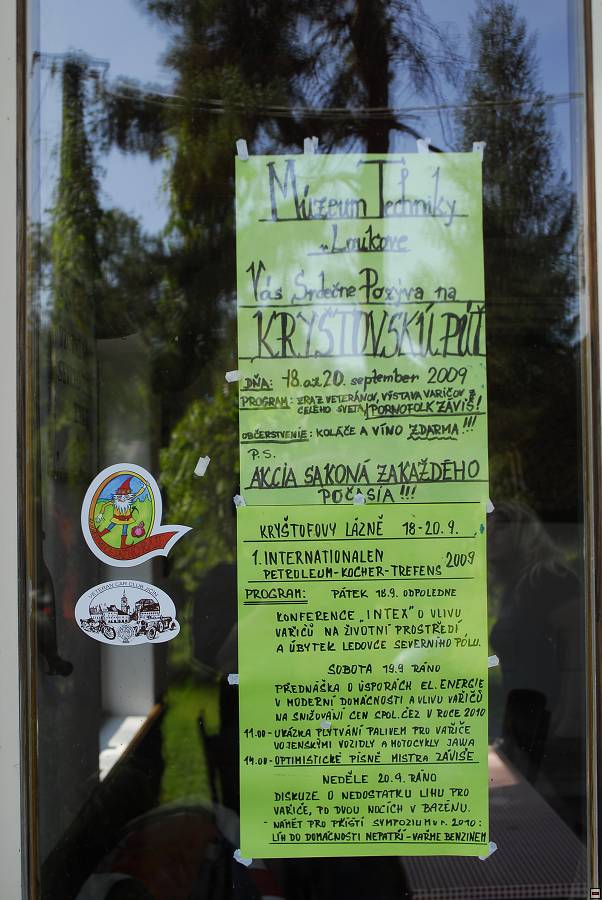 Múzeum Techniky
v Loukove
Vás Srdečne Pozýva na
KRYŠTOVSKÚ PÚŤ
DŇA: 18. až 20. september 2009
PROGRAM: ZRAZ VETERÁNOV, VÝSTAVA VARIČOV
CELÉHO SVETA, PORNOFOLK ZÁVIŠ!
OBČERSTVENIE: KOLÁČE A VÍNO ZDARMA!!!
P.S.
AKCIA SA KONÁ ZA KAŽDÉHO
POČASIA!!!
KRYŠTOFOVY LÁZNĚ 18-20.9.
1. INTERNATIONALEN 2009
PETROLEUM-KOCHER-TREFENS
PROGRAM: PÁTEK 18.9. ODPOLEDNE
KONFERENCE „INTEX" O VLIVU
VAŘIČŮ NA ŽIVOTNÍ PROSTŘEDÍ
A ÚBYTEK LEDOVCE SEVERNÍHO PÓLU.
SOBOTA 19.9 RÁNO
PŘEDNÁŠKA O ÚSPORÁCH EL. ENERGIE
V MODERNÍ DOMÁCNOSTI A VLIVU VAŘIČŮ
NA SNIŽOVÁNÍ CEN SPOL. ČEZ V ROCE 2010
11.00 - UKÁZKA PLÝTVÁNÍ PALIVEM PRO VAŘIČE
VOJENSKÝMI VOZIDLY A MOTOCYKLY JAWA
14.00 - OPTIMISTICKÉ PÍSNĚ MISTRA ZÁVIŠE
NEDĚLE 20.9. RÁNO
DISKUZE O NEDOSTATKU LIHU PRO
VAŘIČE, PO DVOU NOCÍCH V BAZÉNU.
- NÁMĚT PRO PŘÍŠTÍ SYMPOZIUM V R. 2010:
LÍH DO DOMÁCNOSTI NEPATŘÍ - VAŘME BENZINEM
VETERAN CAR CLUB JIČÍN